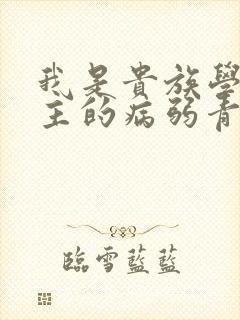 我是貴族學
主的病弱青
臨雪藍藍